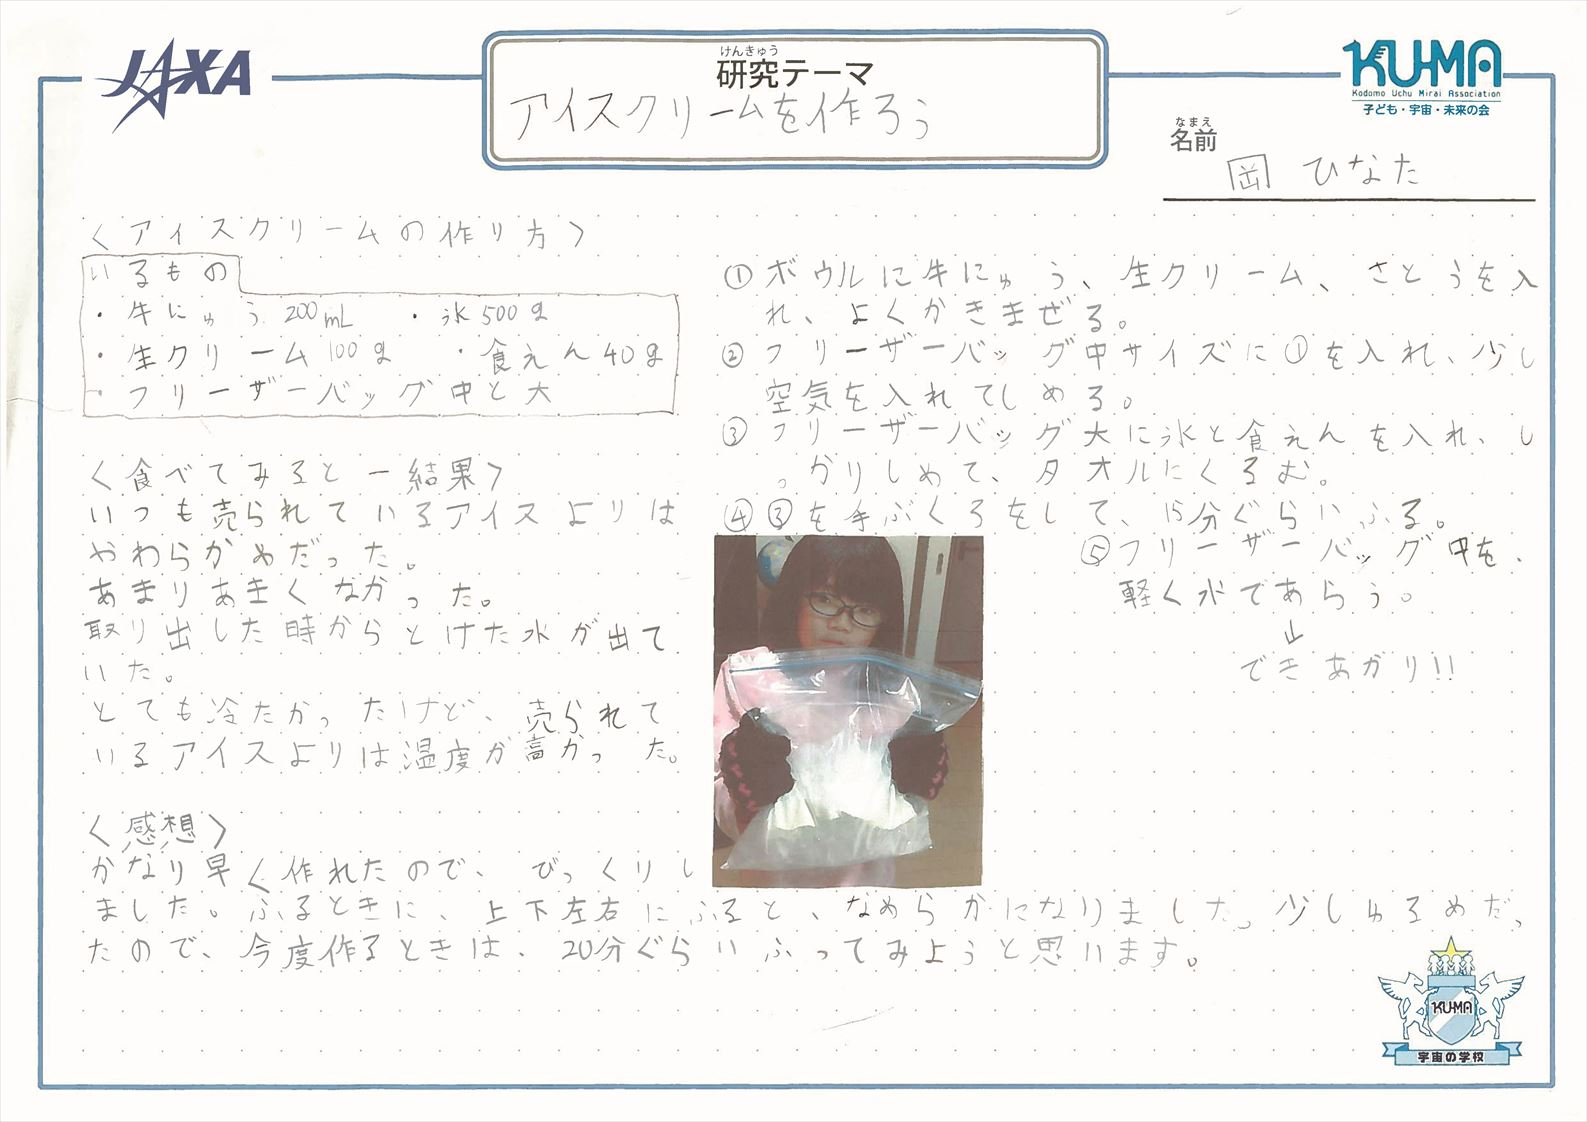 JAXA
けんきゅう
研究テーマ
アイスクリームを作ろう
KU-MA
Kodomo Uchu Mirai Association
子ども・宇宙・未来の会
なまえ
名前
岡 ひなた
〈アイスクリームの作り方〉
いるもの
・牛にゅう 200mL ・氷500g
・生クリーム100g ・食えん40g
・フリーザーバッグ中と大
〈食べてみると―結果〉
いつも売られているアイスよりは
やわらかめだった。
あまりあまくなかった。
取り出した時からとけた水が出て
いた。
とても冷たかったけど、売られて
いるアイスよりは温度が高かった。
①ボウルに牛にゅう、生クリーム、さとうを入
れ、よくかきまぜる。
②フリーザーバッグ中サイズに①を入れ、少し
空気を入れてしめる。
③フリーザーバッグ大に氷と食えんを入れ、し
っかりしめて、タオルにくるむ。
④③を手ぶくろをして、15分ぐらいふる。
⑤フリーザーバッグ中を、
軽く水であらう。
↓
できあがり!!
〈感想〉
かなり早く作れたので、びっくりし
ました。ふるときに、上下左右にふると、なめらかになりました。少しゆるめだっ
たので、今度作るときは、20分ぐらいふってみようと思います。
KU-MA
宇宙の学校